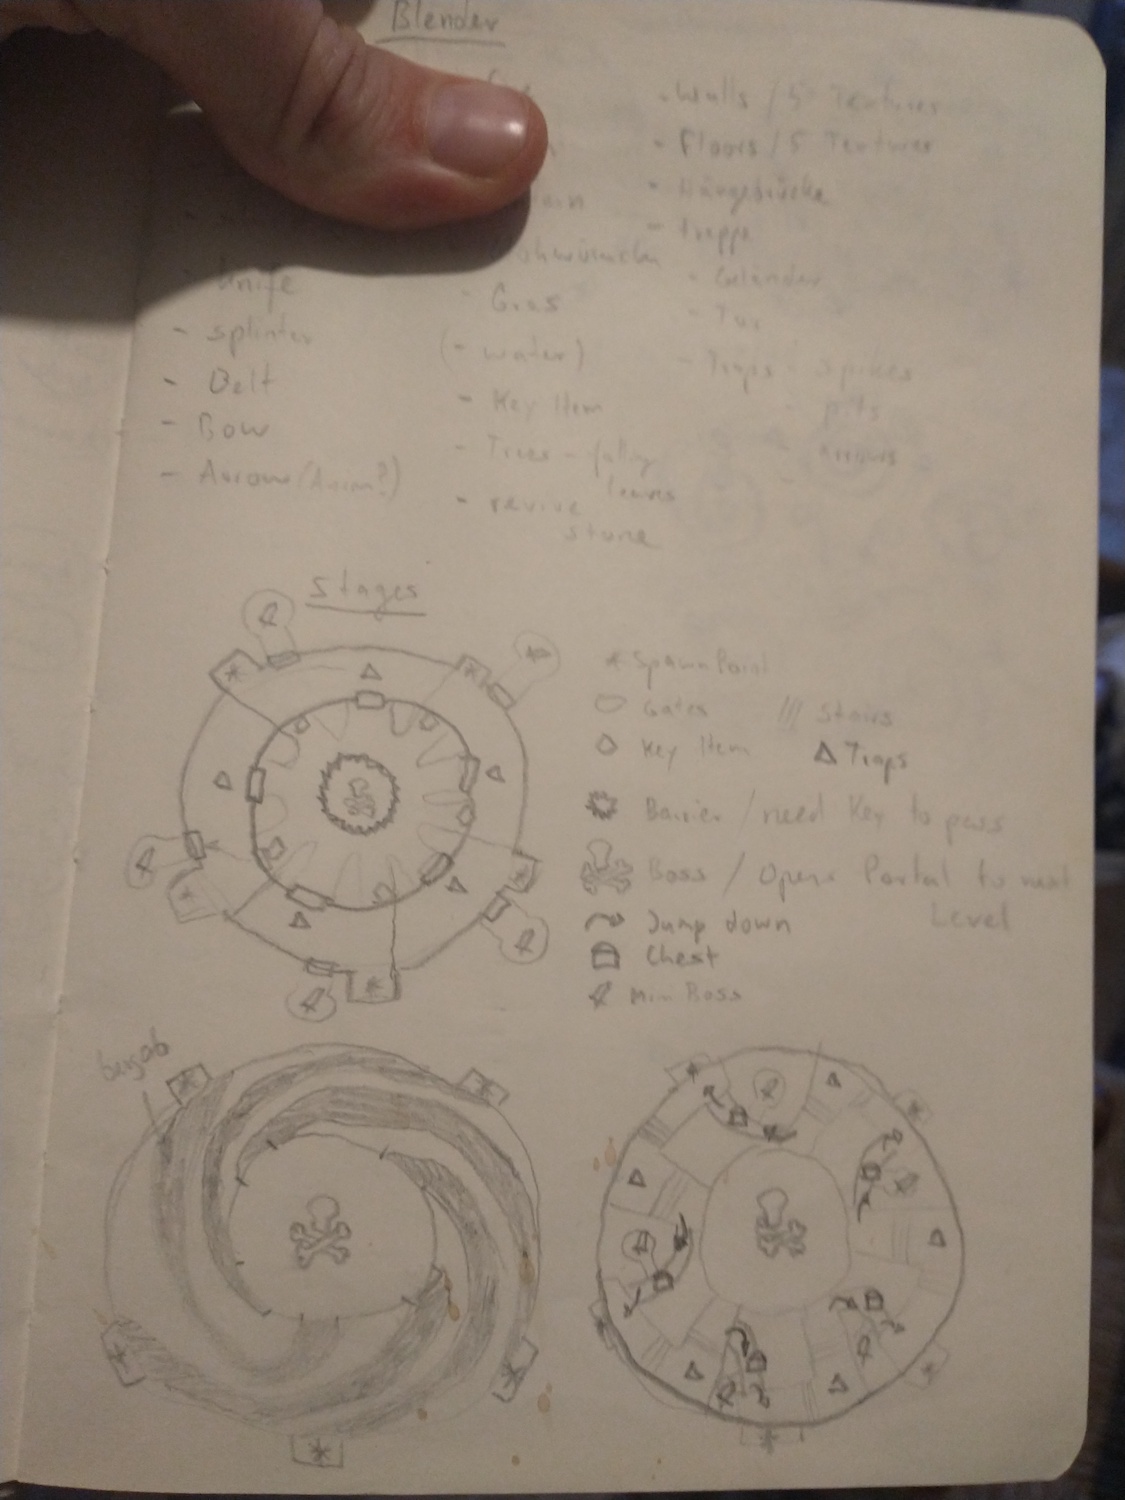 Blender
Knife
- splinter
- Belt
- Bow
- Arrow (
- Gras
(- water)
- Key Item
- Trees - falling
leaves
- revive
stone
- Walls / 5 Textures
- Floors / 5 Textures
- Hängebrücke
- treppe
- Geländer
- Tor
- Traps - spikes
- pits
- arrows
Stages
* SpawnPoint
Gates /// Stairs
Key Item Traps
Barrier / need Key to pass
Boss / Opens Portal to next
Level
Jump down
Chest
Mini Boss
bergab